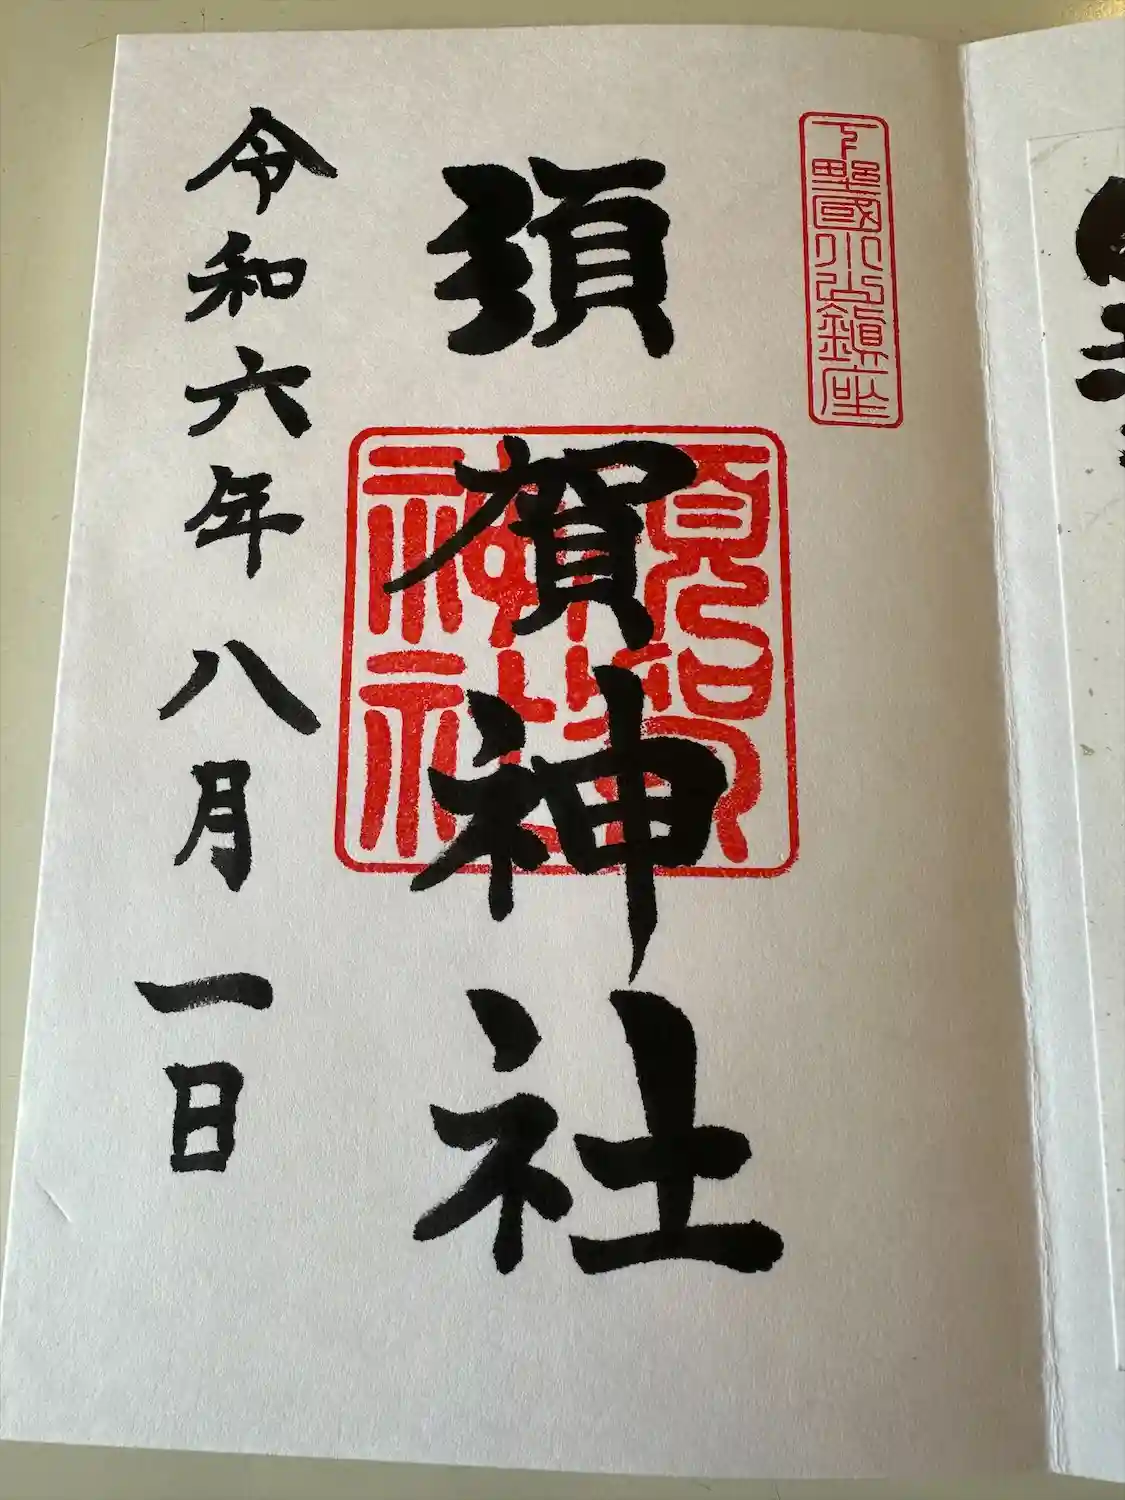 下野國小山鎮座
須賀神社
須賀神社
令和六年八月一日